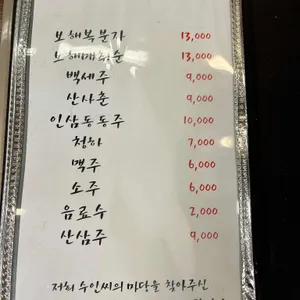 보해복분자 13,000
보해매취순 13,000
백세주 9,000
산사춘 9,000
인삼동동주 10,000
청하 7,000
맥주 6,000
소주 6,000
음료수 2,000
산삼주 9,000
저희 수인씨의 마당을 찾아주신